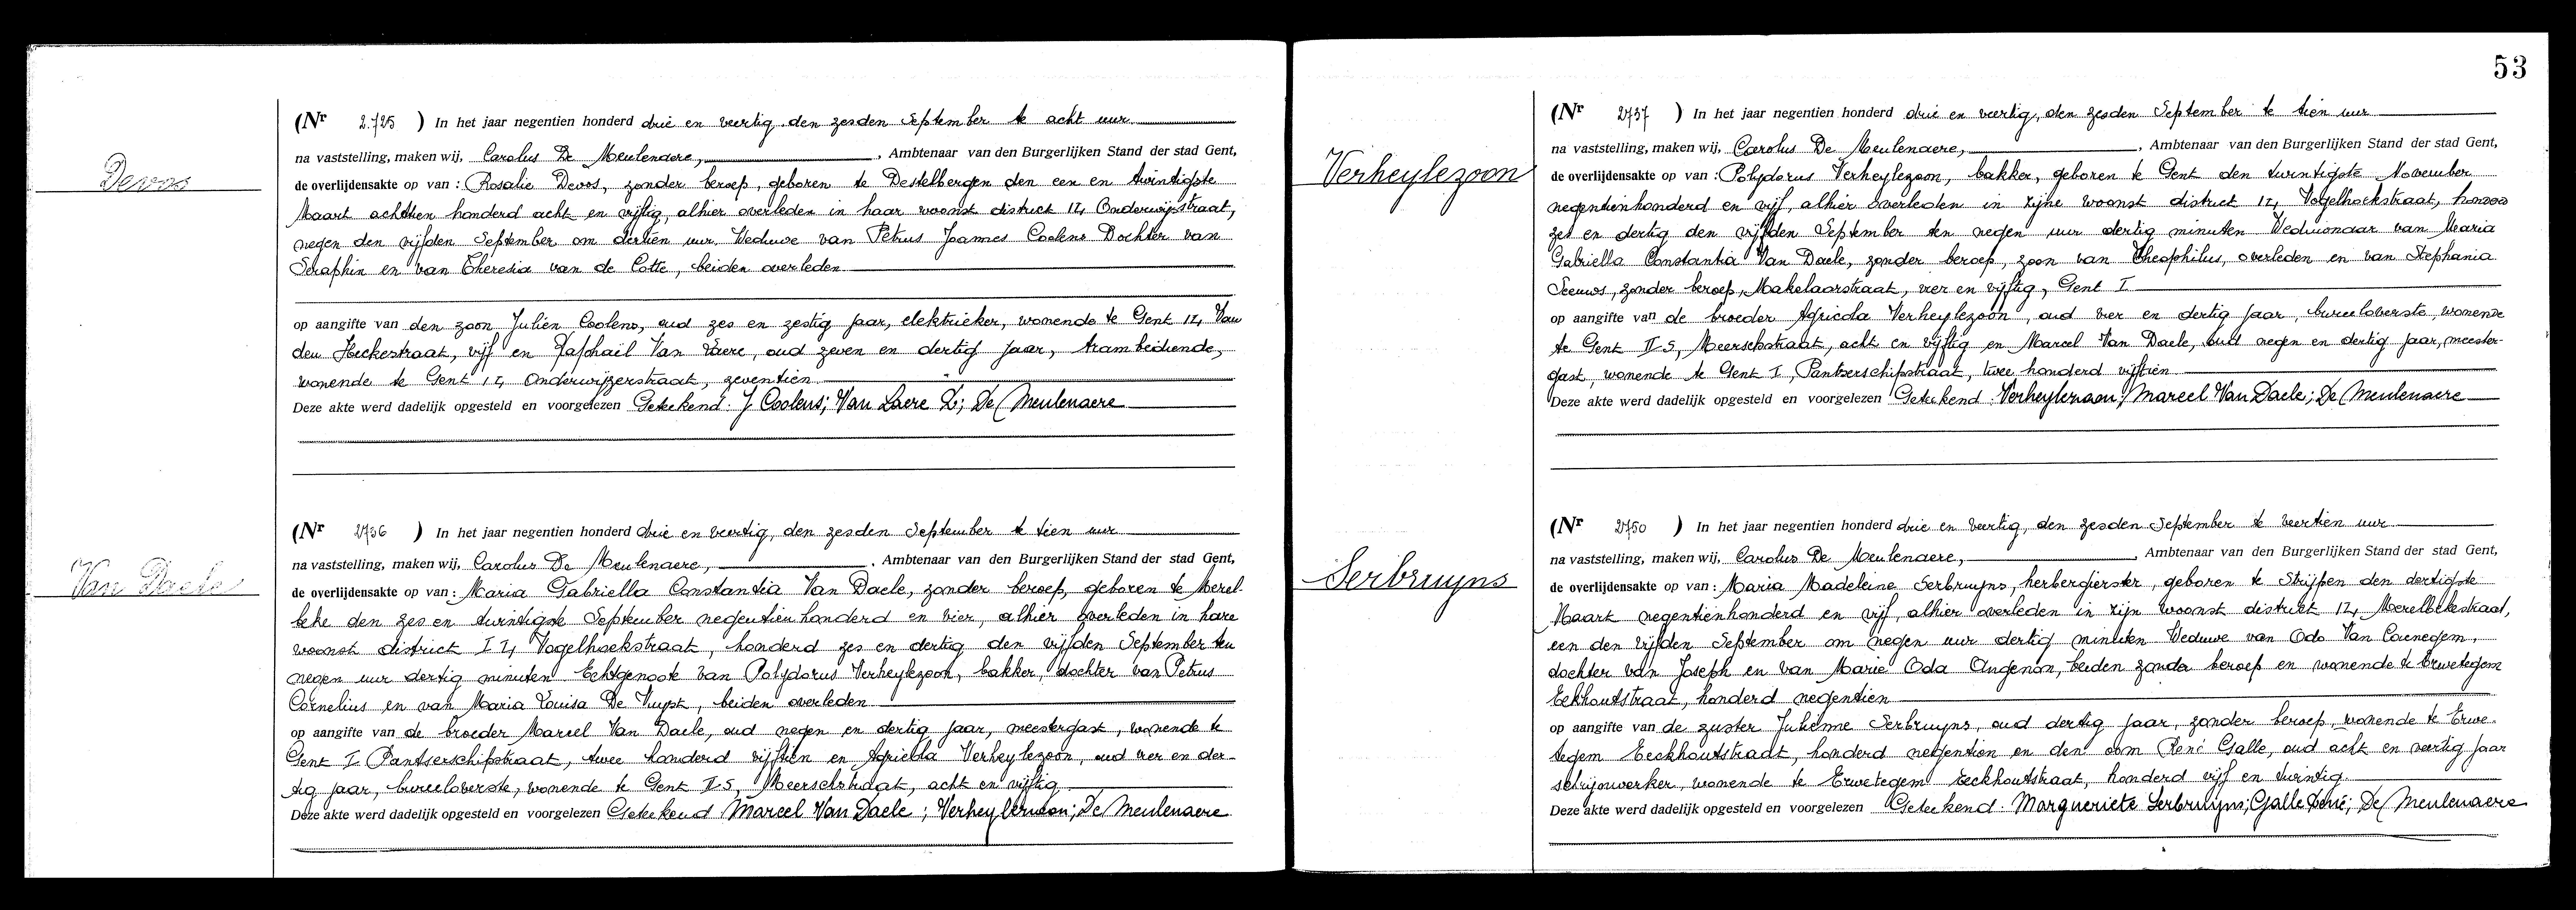 Devos
(Nr 2.725 ) In het jaar negentien honderd drie en veertig den zesden September te acht uur
na vaststelling, maken wij, Carolus De Meulenaere, , Ambtenaar van den Burgerlijken Stand der stad Gent,
de overlijdensakte op van : Rosalie Devos, zonder beroep, geboren te Destelbergen den een en twintigste
Maart achttien honderd acht en vijftig, alhier overleden in haar woonst district 14, Onderwijsstraat,
negen den vijfden September om dertien uur. Weduwe van Petrus Joannes Coolens Dochter van
Seraphin en van Theresia van de Cotte, beiden overleden
op aangifte van den zoon Julien Coolens, oud zes en zestig jaar, elektrieker, wonende te Gent 14, Van
den Heckestraat, vijf en Raphaël Van Laere, oud zeven en dertig jaar, trambediende,
wonende te Gent 14 Onderwijzerstraat, zeventien
Deze akte werd dadelijk opgesteld en voorgelezen Getekend. J Coolens; Van Laere R; De Meulenaere
Van Daele
(Nr 2736 ) In het jaar negentien honderd drie en veertig, den zesden September te tien uur
na vaststelling, maken wij, Carolus De Meulenaere, , Ambtenaar van den Burgerlijken Stand der stad Gent,
de overlijdensakte op van : Maria Gabriella Constantia Van Daele, zonder beroep, geboren te Merel-
beke den zes en twintigste September negentien honderd en vier, alhier overleden in hare
woonst district 14, Vogelhoekstraat, honderd zes en dertig den vijfden September ten
negen uur dertig minuten Echtgenoote van Polydorus Verheylezoon, bakker, dochter van Petrus
Cornelius en van Maria Louisa De Vuyst, beiden overleden
op aangifte van de broeder Marcel Van Daele, oud negen en dertig jaar, meestergast, wonende te
Gent I Pantserschipstraat, twee honderd vijftien en Agricola Verheylezoon, oud vier en der-
tig jaar, bureeloverste, wonende te Gent II S, Meerschstraat, acht en vijftig
Deze akte werd dadelijk opgesteld en voorgelezen Getekend Marcel Van Daele ; Verheylezoon; De Meulenaere
53
Verheylezoon
(Nr 2737 ) In het jaar negentien honderd drie en veertig, den zesden September te tien uur
na vaststelling, maken wij, Carolus De Meulenaere, , Ambtenaar van den Burgerlijken Stand der stad Gent,
de overlijdensakte op van : Polydorus Verheylezoon, bakker, geboren te Gent den twintigste November
negentienhonderd en vijf, alhier overleden in zijne woonst district 14, Vogelhoekstraat,
zes en dertig den vijfden September ten negen uur dertig minuten Weduwnaar van Maria
Gabriella Constantia Van Daele, zonder beroep, zoon van Theophilus, overleden en van Stephania
Seeuws, zonder beroep, Makelaarstraat, vier en vijftig, Gent I
op aangifte van de broeder Agricola Verheylezoon, oud vier en dertig jaar, bureeloverste, wonende
te Gent II S, Meerschstraat, acht en vijftig en Marcel Van Daele, oud negen en dertig jaar, meester-
gast, wonende te Gent I, Pantserschipstraat, twee honderd vijftien
Deze akte werd dadelijk opgesteld en voorgelezen Getekend Verheylezoon; Marcel Van Daele; De Meulenaere
Serbruyns
(Nr 2750 ) In het jaar negentien honderd drie en veertig, den zesden September te veertien uur
na vaststelling, maken wij, Carolus De Meulenaere, , Ambtenaar van den Burgerlijken Stand der stad Gent,
de overlijdensakte op van : Maria Madeleine Serbruyns, herbergierster, geboren te Strijpen den dertigste
Maart negentienhonderd en vijf, alhier overleden in zijn woonst district 14, Merelbekestraat,
een den vijfden September om negen uur dertig minuten Weduwe van Odo Van Caenegem,
dochter van Joseph en van Marie Oda Angenon, beiden zonder beroep en wonende te Erwetegem
Eekhoutstraat, honderd negentien
op aangifte van de zuster Julienne Serbruyns, oud dertig jaar, zonder beroep, wonende te Erwe-
tegem Eeckhoutstraat, honderd negentien en den oom René Galle, oud acht en veertig jaar
schrijnwerker, wonende te Erwetegem Eeckhoutstraat, honderd vijf en twintig
Deze akte werd dadelijk opgesteld en voorgelezen Getekend. Margueriete Serbruyns; Galle René; De Meulenaere